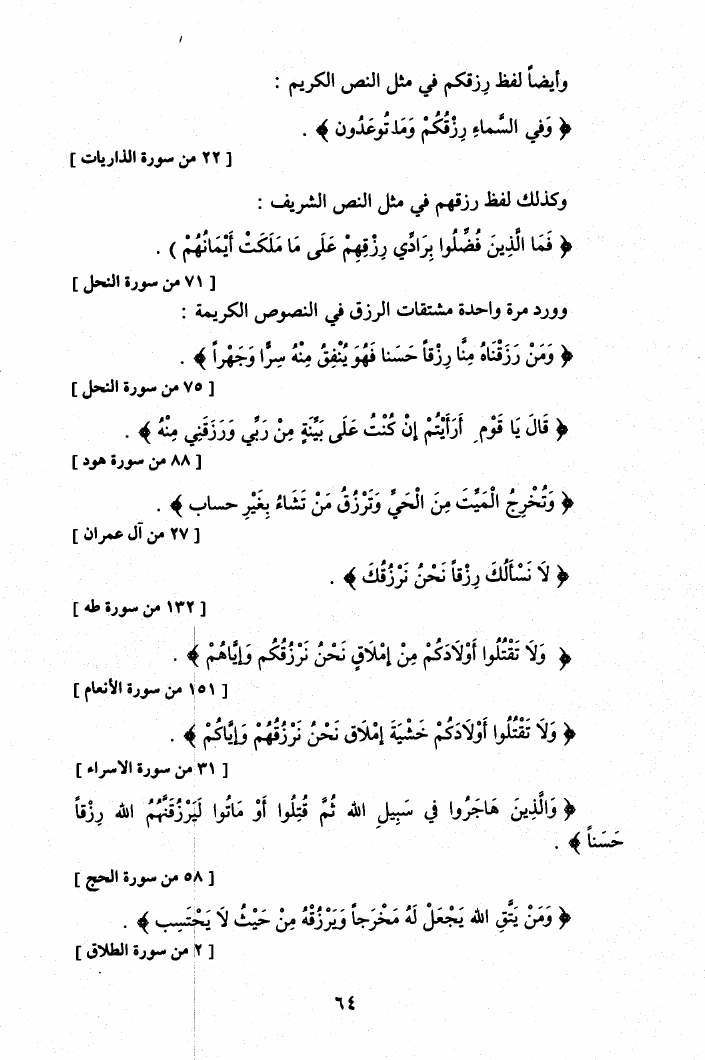 وأيضاً لفظ رِزقكم في مثل النص الكريم :
﴿ وَفي السَّماءِ رِزْقُكُمْ وَمَا تُوعَدُون ﴾ .
[ ٢٢ من سورة الذاريات ]
وكذلك لفظ رزقهم في مثل النص الشريف :
﴿ فَمَا الَّذِينَ فُضِّلُوا بِرَادِّي رِزْقِهِمْ عَلَى مَا مَلَكَتْ أَيْمَانُهُمْ ) .
[ ٧١ من سورة النحل ]
وورد مرة واحدة مشتقات الرزق في النصوص الكريمة :
﴿ وَمَنْ رَزَقْنَاهُ مِنَّا رِزْقاً حَسَنا فَهُوَ يُنْفِقُ مِنْهُ سِرًّا وَجَهْراً ﴾ .
[ ٧٥ من سورة النحل ]
﴿ قَالَ يَا قَوْمِ أَرَأَيْتُمْ إِنْ كُنْتُ عَلَى بَيِّنَةٍ مِنْ رَبِّي وَرَزَقَنِي مِنْهُ ﴾ .
[ ٨٨ من سورة هود ]
﴿ وَتُخْرِجُ الْمَيِّتَ مِنَ الْحَيِّ وَتَرْزُقُ مَنْ تَشَاءُ بِغَيْرِ حساب ﴾ .
[ ٢٧ من آل عمران ]
﴿ لاَ نَسْأَلُكَ رِزْقاً نَحْنُ نَرْزُقُكَ ﴾ .
[ ١٣٢ من سورة طه ]
﴿ وَلاَ تَقْتُلُوا أَوْلاَدَكُمْ مِنْ إِمْلاَقٍ نَحْنُ نَرْزُقُكُم وَإِيَّاهُمْ ﴾ .
[ ١٥١ من سورة الأنعام ]
﴿ وَلاَ تَقْتُلُوا أَوْلاَدَكُمْ خَشْيَةَ إِمْلاَق نَحْنُ نَرْزُقُهُمْ وَإِيَّاكُمْ ﴾ .
[ ٣١ من سورة الاسراء ]
﴿ وَالَّذِينَ هَاجَرُوا في سَبِيلِ الله ثُمَّ قُتِلُوا أَوْ مَاتُوا لَيَرْزُقَنَّهُمُ الله رِزْقاً
حَسَناً ﴾ .
[ ٥٨ من سورة الحج ]
﴿ وَمَنْ يَتَّقِ الله يَجْعَلْ لَهُ مَخْرَجاً وَيَرْزُقْهُ مِنْ حَيْثُ لاَ يَحْتَسِب ﴾ .
[ ٢ من سورة الطلاق ]
٦٤